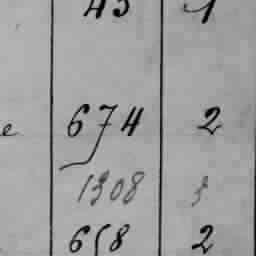 45 1
e 674 2
1308 3
658 2